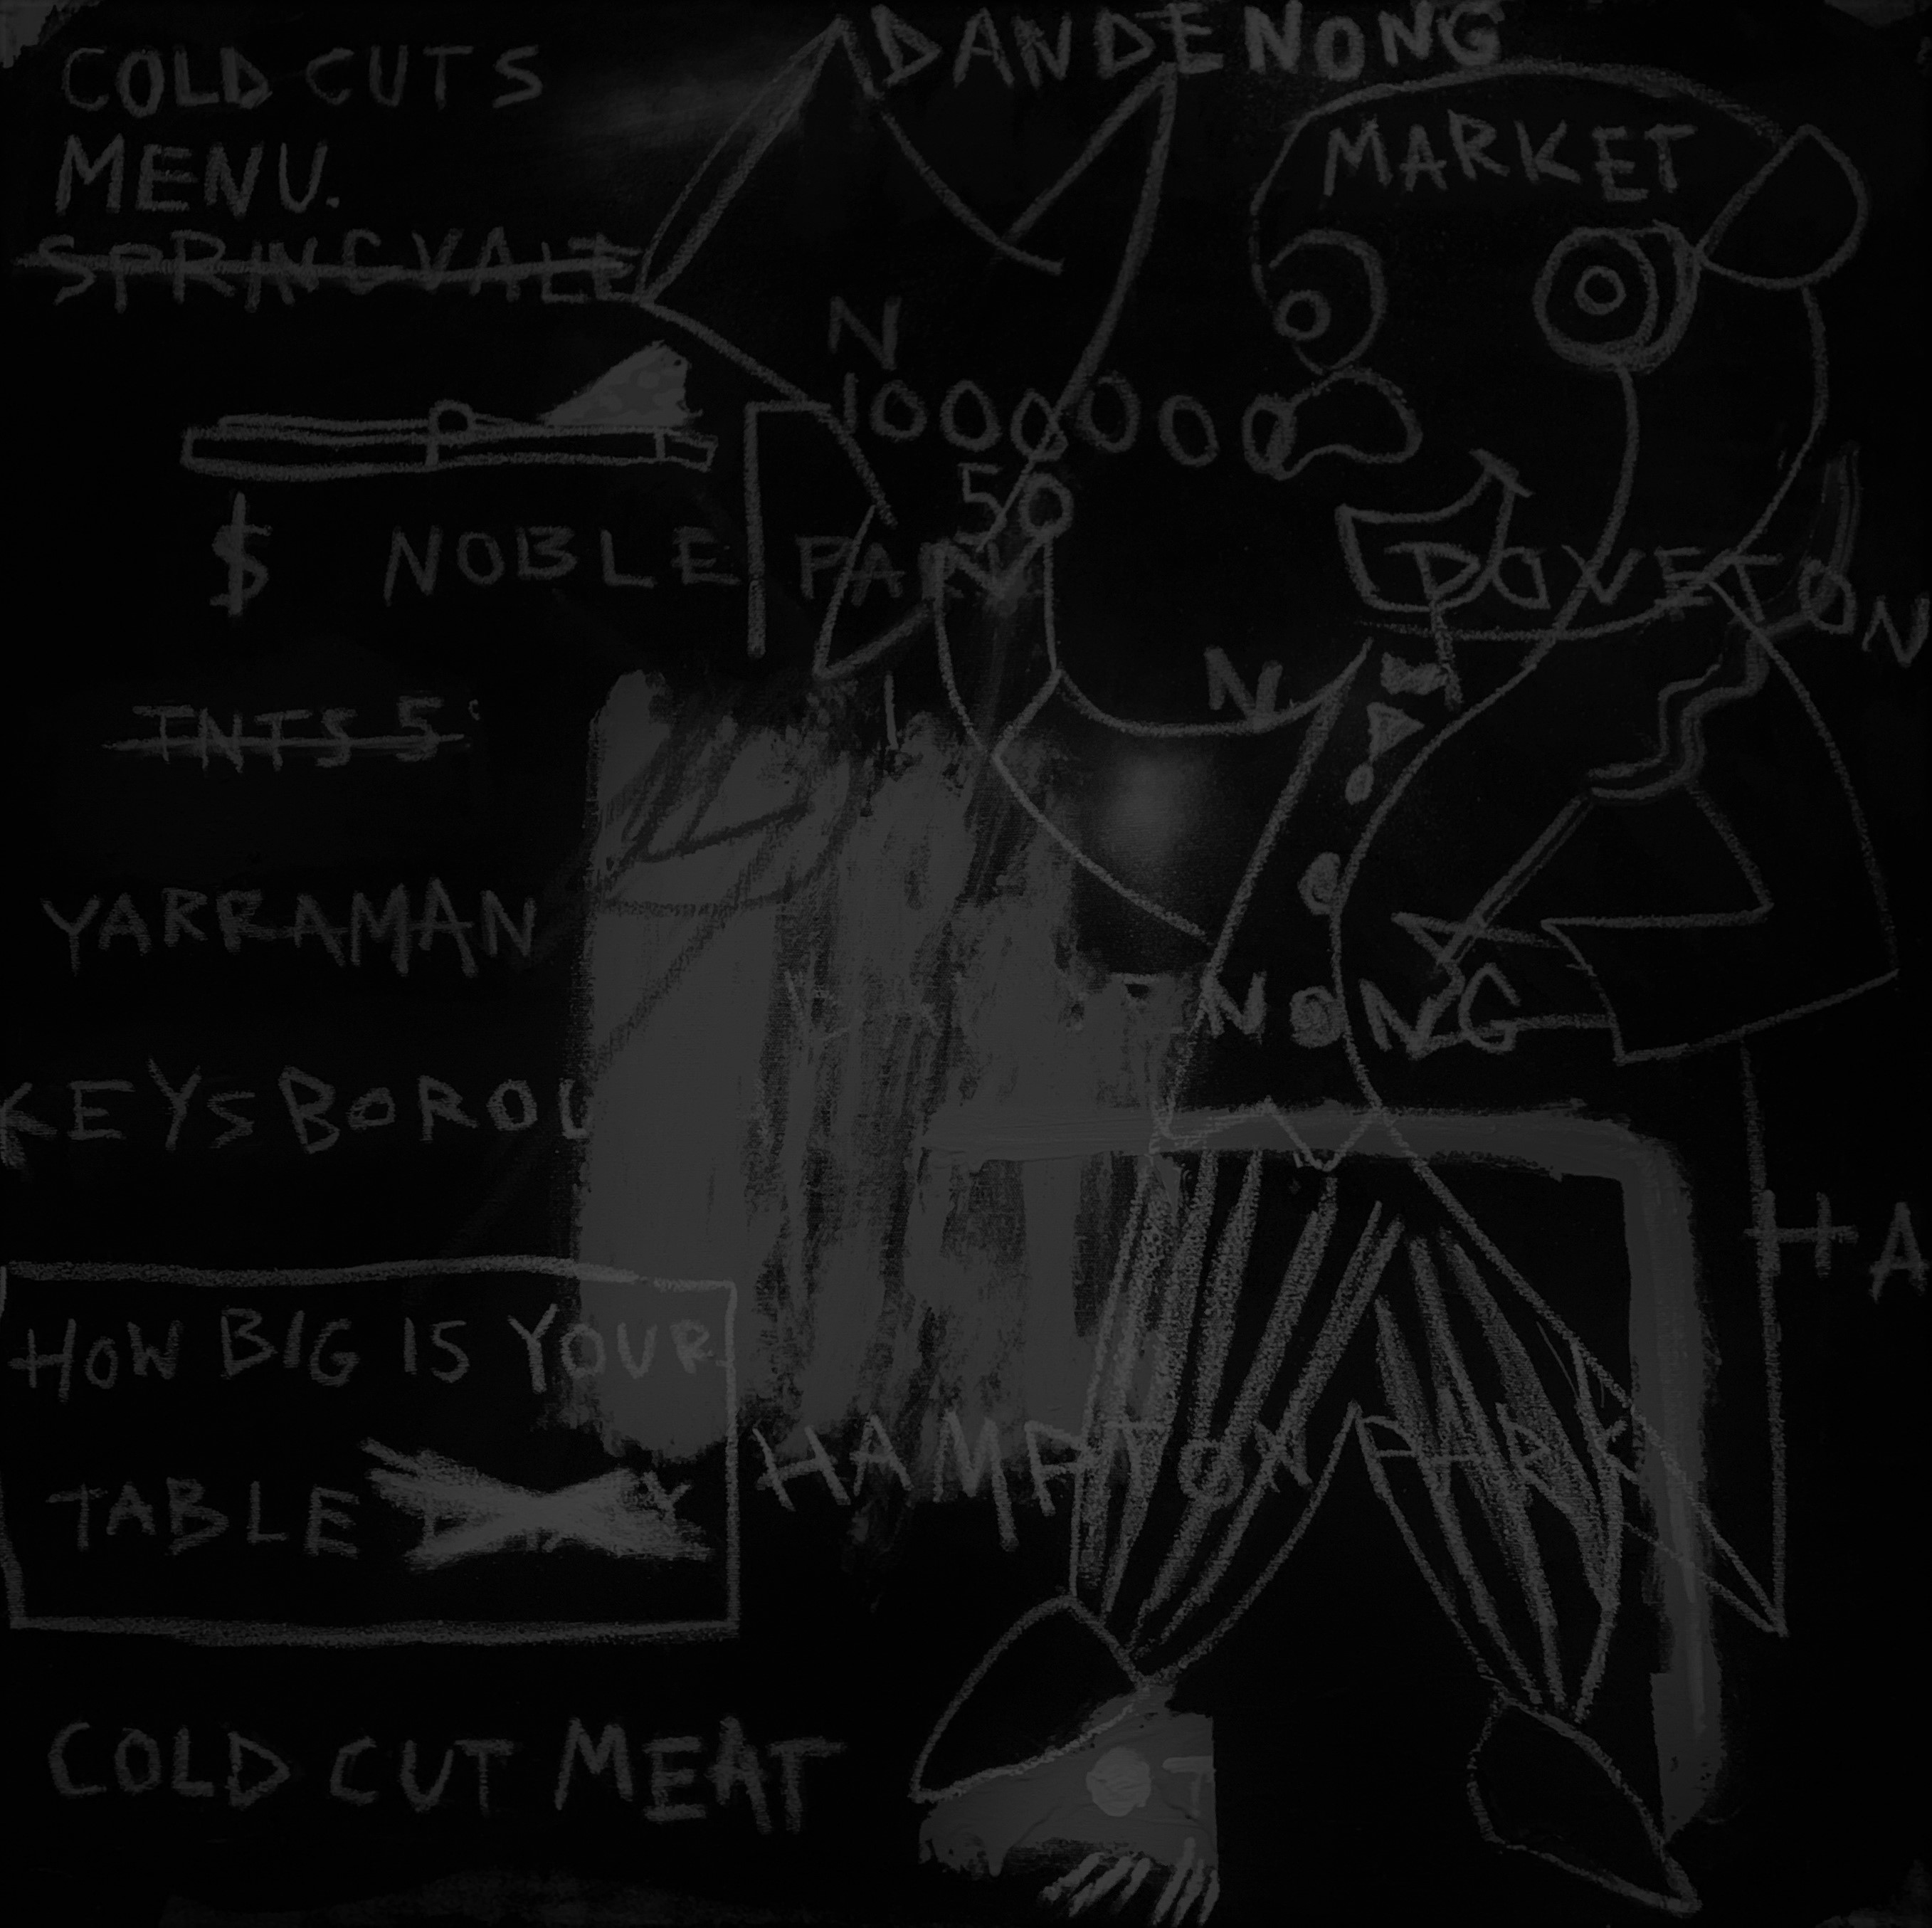 COLD CUTS
MENU.
SPRINGVALE
DANDENONG
MARKET
N
1000000
50
$ NOBLE PARK
DOVETON
N
TNTS 5
YARRAMAN
NONG
KEYSBOROU
HA
HOW BIG IS YOUR
TABLE
HAMPTON PARK
COLD CUT MEAT